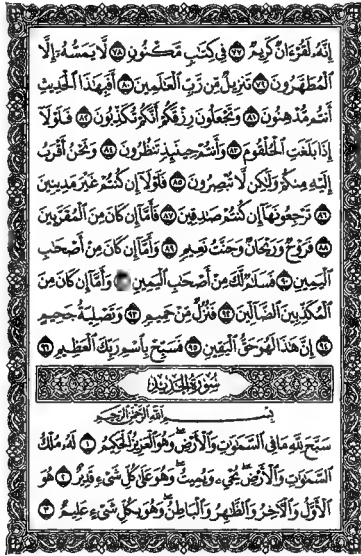 إِنَّهُۥ لَقُرْءَانٌ كَرِيمٌ ٧٧ فِي كِتَٰبٍ مَّكْنُونٍ ٧٨ لَّا يَمَسُّهُۥٓ إِلَّا
ٱلْمُطَهَّرُونَ ٧٩ تَنزِيلٌ مِّن رَّبِّ ٱلْعَٰلَمِينَ ٨٠ أَفَبِهَٰذَا ٱلْحَدِيثِ
أَنتُم مُّدْهِنُونَ ٨١ وَتَجْعَلُونَ رِزْقَكُمْ أَنَّكُمْ تُكَذِّبُونَ ٨٢ فَلَوْلَآ
إِذَا بَلَغَتِ ٱلْحُلْقُومَ ٨٣ وَأَنتُمْ حِينَئِذٍ تَنظُرُونَ ٨٤ وَنَحْنُ أَقْرَبُ
إِلَيْهِ مِنكُمْ وَلَٰكِن لَّا تُبْصِرُونَ ٨٥ فَلَوْلَآ إِن كُنتُمْ غَيْرَ مَدِينِينَ
٨٦ تَرْجِعُونَهَآ إِن كُنتُمْ صَٰدِقِينَ ٨٧ فَأَمَّآ إِن كَانَ مِنَ ٱلْمُقَرَّبِينَ
٨٨ فَرَوْحٌ وَرَيْحَانٌ وَجَنَّتُ نَعِيمٍ ٨٩ وَأَمَّآ إِن كَانَ مِنْ أَصْحَٰبِ
ٱلْيَمِينِ ٩٠ فَسَلَٰمٌ لَّكَ مِنْ أَصْحَٰبِ ٱلْيَمِينِ وَأَمَّآ إِن كَانَ مِنَ
ٱلْمُكَذِّبِينَ ٱلضَّآلِّينَ ٩٢ فَنُزُلٌ مِّنْ حَمِيمٍ ٩٣ وَتَصْلِيَةُ جَحِيمٍ
٩٤ إِنَّ هَٰذَا لَهُوَ حَقُّ ٱلْيَقِينِ ٩٥ فَسَبِّحْ بِٱسْمِ رَبِّكَ ٱلْعَظِيمِ ٩٦
سُورَةُ الحَدِيد
بِسْمِ ٱللَّهِ ٱلرَّحْمَٰنِ ٱلرَّحِيمِ
سَبَّحَ لِلَّهِ مَا فِي ٱلسَّمَٰوَٰتِ وَٱلْأَرْضِ وَهُوَ ٱلْعَزِيزُ ٱلْحَكِيمُ ١ لَهُۥ مُلْكُ
ٱلسَّمَٰوَٰتِ وَٱلْأَرْضِ يُحْيِۦ وَيُمِيتُ وَهُوَ عَلَىٰ كُلِّ شَيْءٍ قَدِيرٌ ٢ هُوَ
ٱلْأَوَّلُ وَٱلْءَاخِرُ وَٱلظَّٰهِرُ وَٱلْبَاطِنُ وَهُوَ بِكُلِّ شَيْءٍ عَلِيمٌ ٣